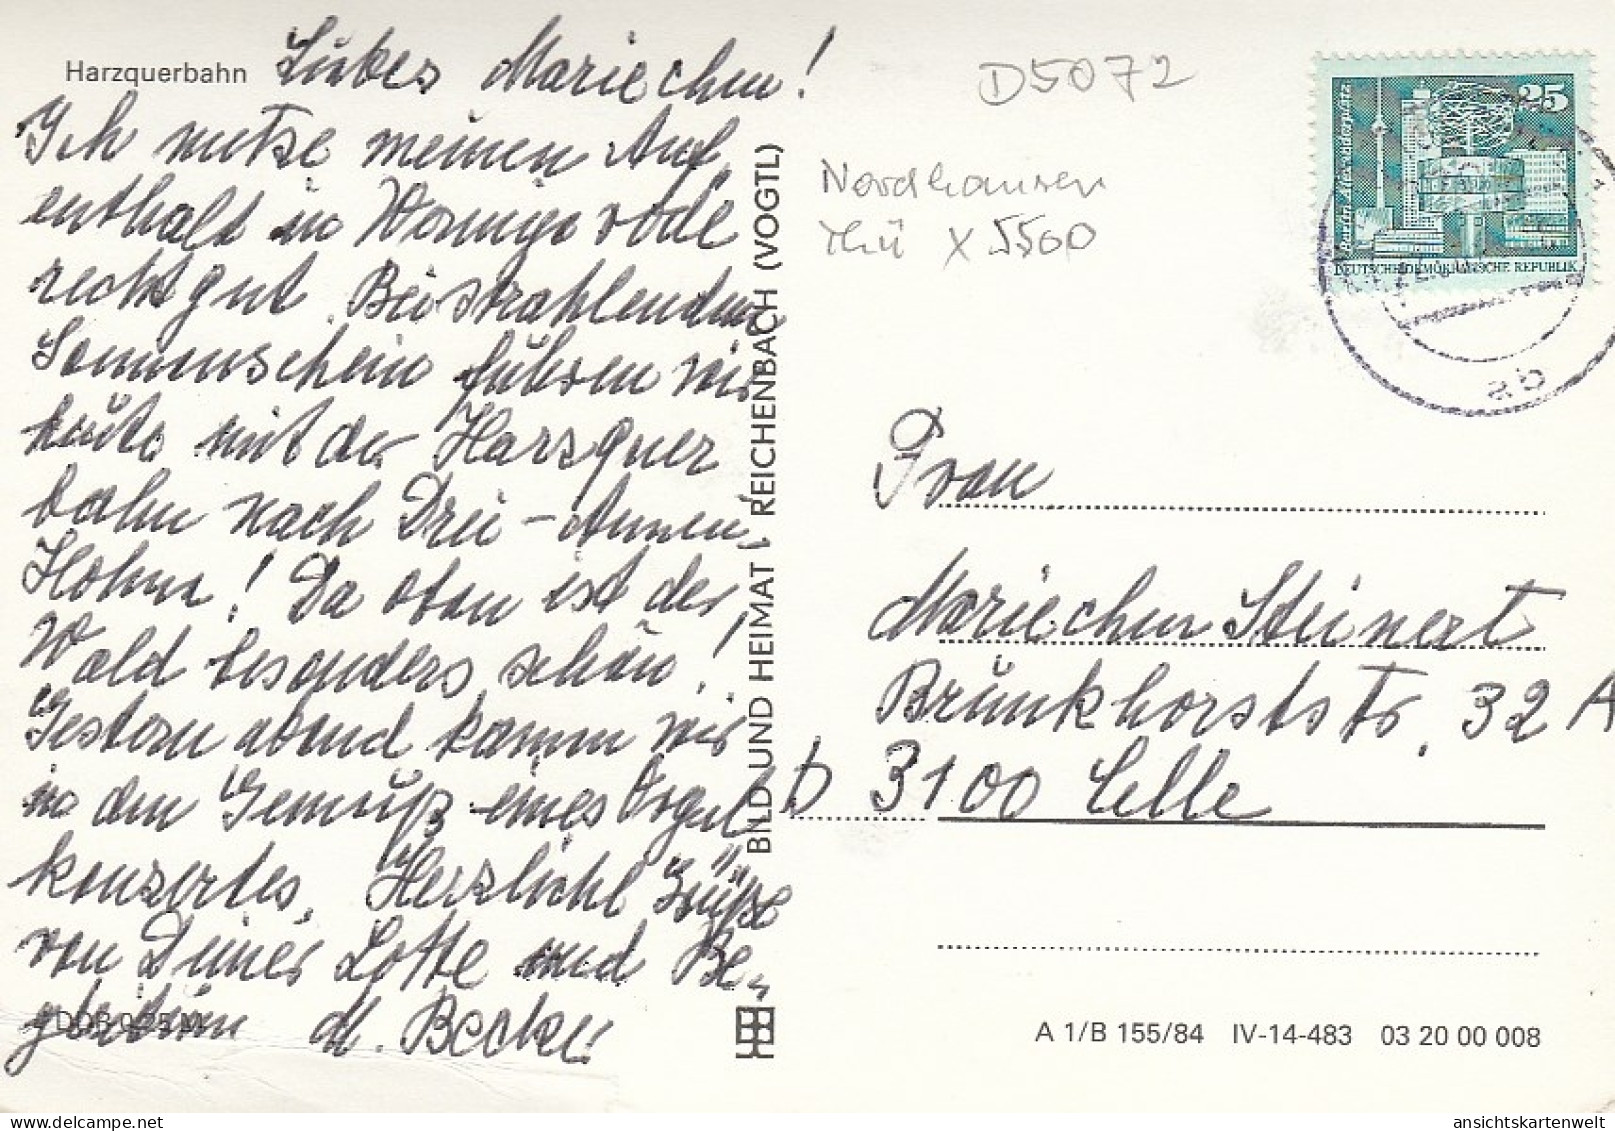 Harzquerbahn
Liebes Mariechen!
Ich nutze meinen Auf,
enthalt in Wernigerode
recht gut. Bei strahlendem
Sonnenschein fuhren wir
heute mit der Harzquer
bahn nach Drei-Annen-
Hohne! Da oben ist der
Wald besonders schön!
Gestern abend kamen wir
in den Genuß eines Orgel
konzertes. Herzliche Grüße
von Deiner Lotte und Be,,
gleiterin M. Becker
BILD UND HEIMAT REICHENBACH (VOGTL)
D5072
Nordhausen
Thü X 5500
25
Berlin Alexanderplatz
DEUTSCHE DEMOKRATISCHE REPUBLIK
ab
Frau
Mariechen Steinert
Brünkhorststr. 32 A
D 3100 Celle
A 1/B 155/84 IV-14-483 03 20 00 008
ansichtskartenwelt